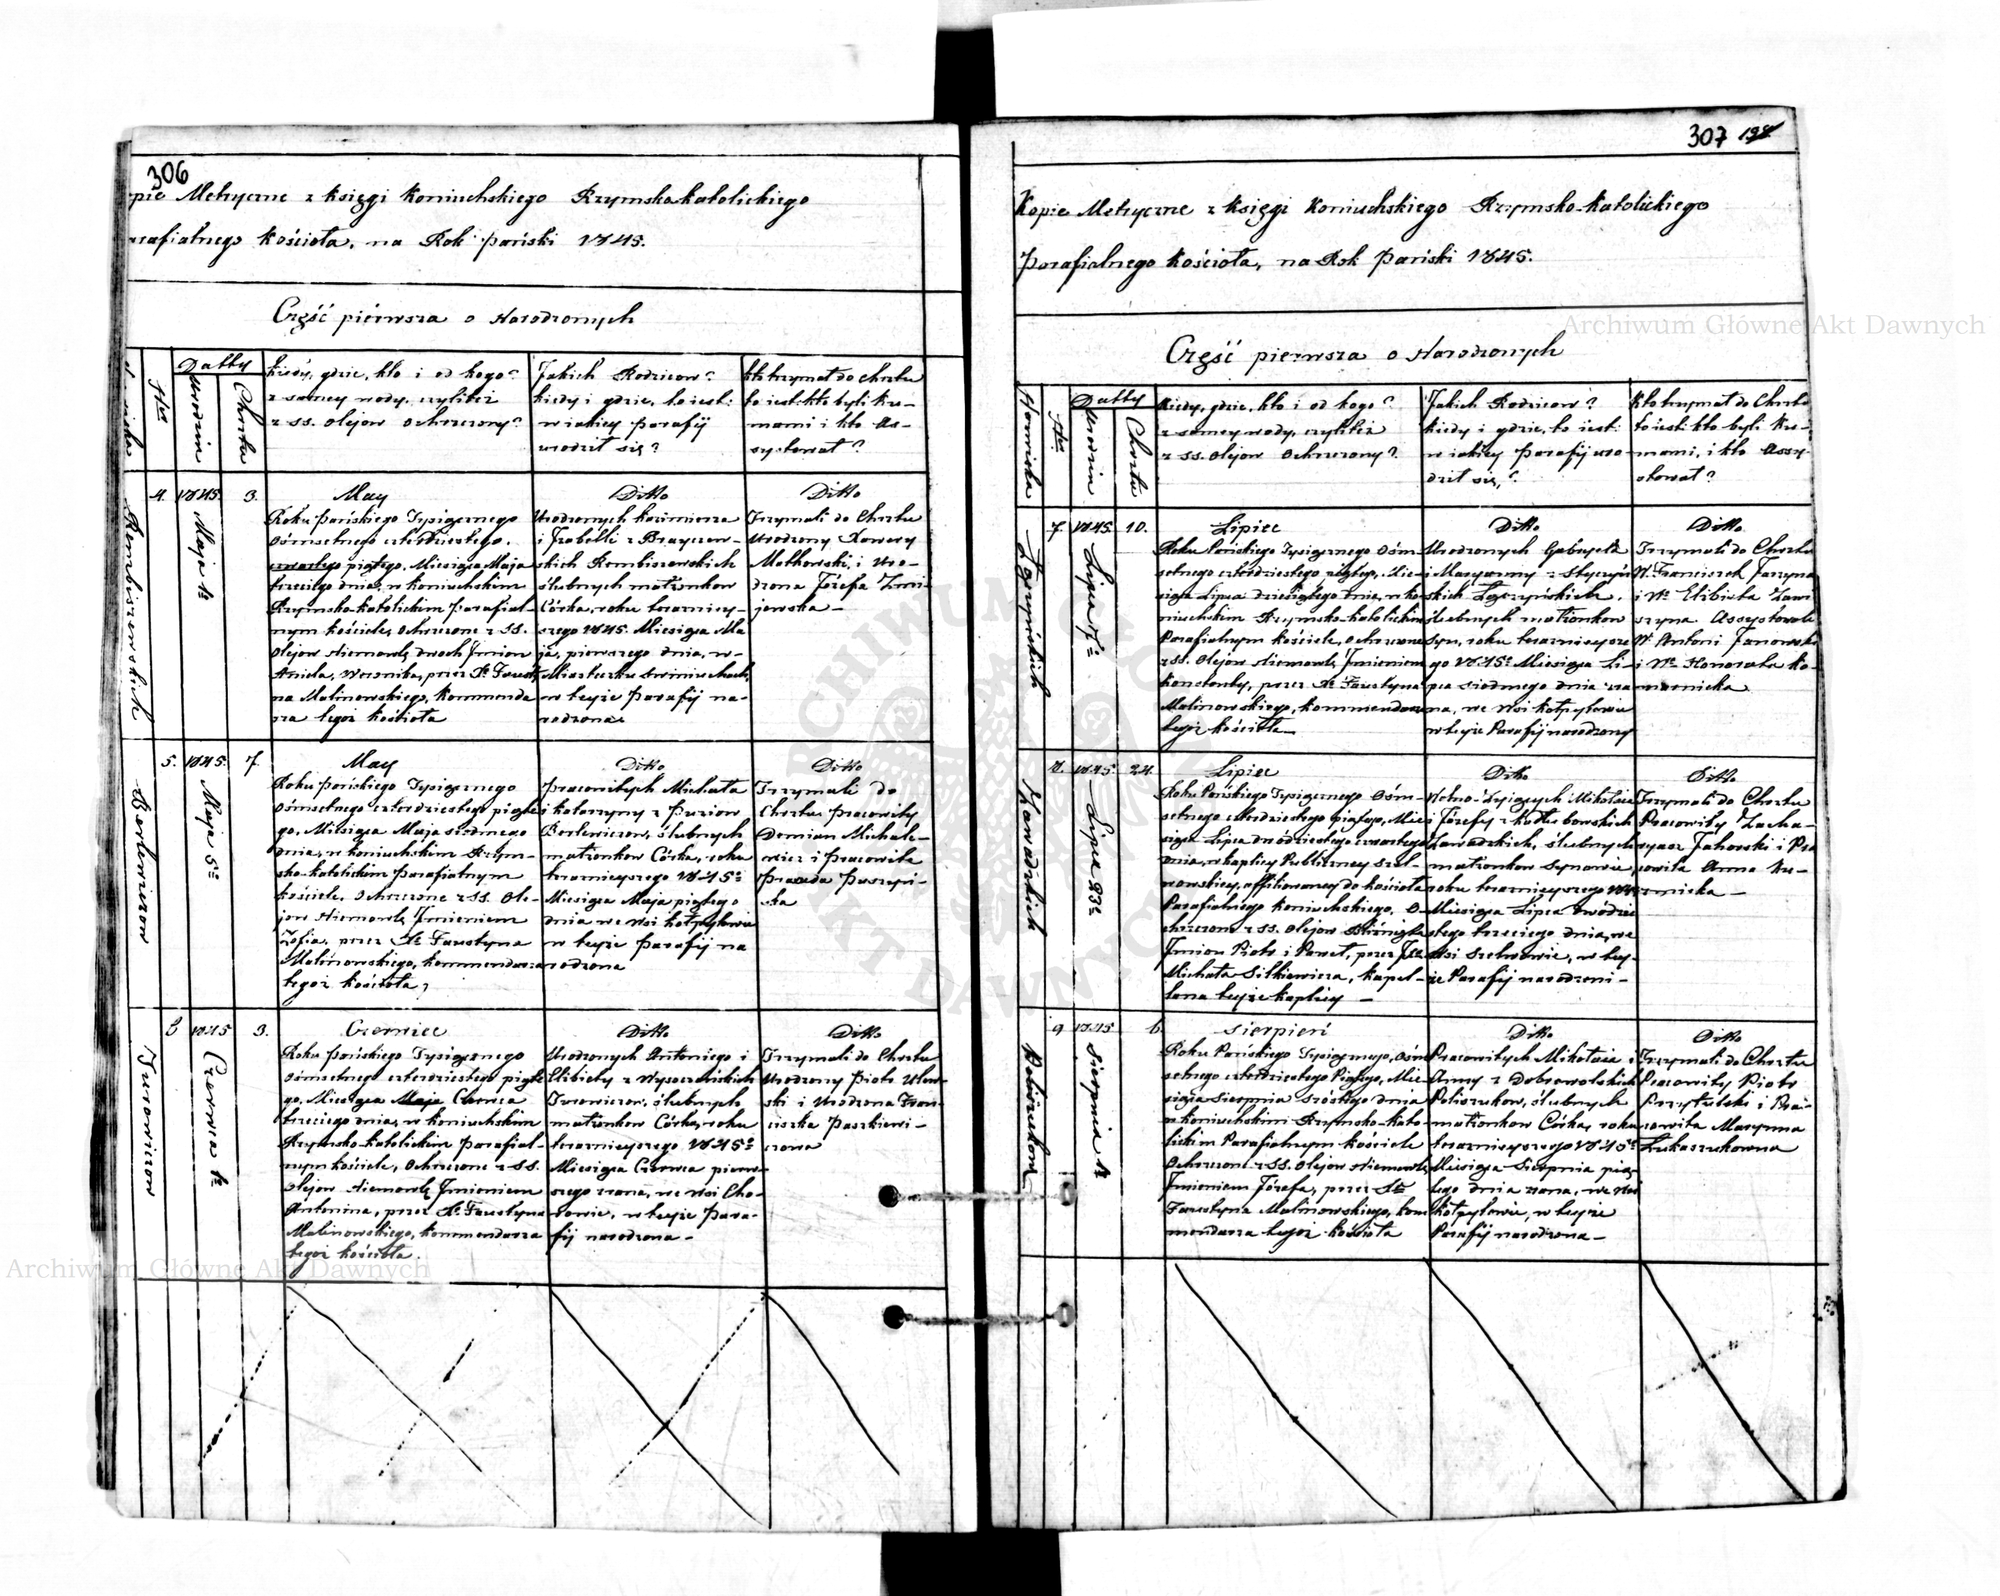 306
pie Metryczne z księgi Koniuchskiego Rzymsko katolickiego
rafialnego kościoła, na Rok Pański 1845.
Część pierwsza o Narodzonych
Nro
Datty
Urodzin
Chrztu
Kiedy, gdzie, kto i od kogo?
z samey wody, czyliteż
z SS. olejow ochrzczony?
Jakich Rodzicow?
kiedy i gdzie, to iest:
w iakiey parafij
urodził się?
Kto trzymał do chrztu
to iest: kto byli Ku-
mami i kto As-
systował?
Rembiszewskich
4.
1845.
Maja 1.
3.
May
Roku Pańskiego Tysiącznego
Ośmsetnego czterdziestego
piątego, Miesiąca Maja
trzeciego dnia, w Koniuchskim
Rzymsko katolickim Parafial-
nym kościele, ochrzczone z SS.
Olejow Niemowlę dwoch Jmion
Aniela, Weronika, przez Xa Fausty-
na Malinowskiego, kommenda
rza tegoż kościoła
Ditto
Urodzonych Kazimierza
i Jzabelli z
skich Rembiszewskich
ślubnych małżonkow
Córka, roku teraznieÿ-
szego 1845. Miesiąca Ma
ja, pierwszego dnia, w
Miasteczku Swiniuchach
w teyże Parafij na-
rodzona
Ditto
Trzymali do Chrztu
Urodzony Xawery
Małkowski, i Uro-
dzona Józefa Żmi-
jewska
Bortewiczow
5.
1845.
Maja 5.
7.
May
Roku Pańskiego Tysiącznego
Ośmsetnego czterdziestego piąte
go, Miesiąca Maja siodmego
dnia, w koniuchskim Rzym-
sko-katolickim Parafialnym
kościele, Ochrzczone z SS. Ole-
jow Niemowlę Jmieniem
Zofia, przez Xa Faustyna
Malinowskiego, kommendarza
tegoż kościoła
Ditto
Pracowitych Michała
i Katarzyny z
Bortewiczow, ślubnych
małżonkow Córka, roku
teraznieyszego 1845
Miesiąca Maja piątego
dnia we Wsi Kołpytowie
w teyże Parafij na
rodzona
Ditto
Trzymali do
Chrztu Pracowity
Demian Michale-
wicz i Pracowita
Jurowiczow
6
1845
Czerwca 1.
3.
Czerwiec
Roku Pańskiego Tysiącznego
Ośmsetnego czterdziestego piąte
go, Miesiąca Maja Czerwca
trzeciego dnia, w koniuchskim
Rzymsko-katolickim Parafial-
nym kościele, Ochrzczone z SS.
Olejow Niemowlę Jmieniem
Antonina, przez Xa Faustyna
Malinowskiego, kommendarza
tegoż kościoła.
Ditto
Urodzonych Antoniego i
Elżbiety z Wysoczańskich
Jurowiczow, ślubnych
małżonkow Córka, roku
teraznieyszego 1845
Miesiąca Czerwca pierw-
szego zrana, we Wsi Cho-
rowie, w teyże Para-
fij narodzona
Ditto
Trzymali do Chrztu
Urodzony Piotr
ski i Urodzona Fran-
ciszka Paszkiewi-
czowa
307 198
Kopie Metryczne z księgi Koniuchskiego Rzymsko-katolickiego
Parafialnego kościoła, na Rok Pański 1845.
Część pierwsza o Narodzonych
Nazwiska
Nro
Datty
Urodzin
Chrztu
Kiedy, gdzie, kto i od kogo?
z samey wody, czyliteż
z SS. Olejow Ochrzczony?
Jakich Rodzicow?
kiedy i gdzie, to iest:
w iakiey parafij uro-
dził się?
Kto trzymał do Chrztu
to iest: kto byli Ku-
mami, i kto Assy-
stował?
7.
1845.
Lipca 7
10.
Lipiec
Roku Pańskiego Tysiącznego Ośm
setnego czterdziestego piątego, Mie-
siąca Lipca dziesiątego dnia, w Ko
niuchskim Rzymsko-katolickim
Parafialnym kościele, Ochrzczone
z SS. Olejow Niemowlę Jmieniem
Konstanty, przez Xa Faustyna
Malinowskiego, kommendarza
tegoż kościoła
Ditto
Urodzonych Gabryela
i Maryanny z
ślubnych małżonkow
Syn, roku teraznieysze
go 1845 Miesiąca Li-
pca siodmego dnia zra
na, we Wsi Kołpytowie
w teyże Parafij narodzony
Ditto
Trzymali do Chrztu
W. Franciszek
i Wa Elżbieta
Assystowali
W. Antoni Janowski
i Wa Honorata
Zawadzkich
8.
1845.
Lipca 23
24.
Lipiec
Roku Pańskiego Tysiącznego Ośm-
setnego czterdziestego piątego, Mie
siąca Lipca dwódziestego czwartego
dnia, w kaplicy Publiczney Szel-
wowskiey, affiliowaney do kościoła
Parafialnego Koniuchskiego, O-
chrzczone z SS. Olejow Bliźnięta
Jmion Piotr i Paweł, przez Jxa
Michała Silkiewicza, kapel-
lana teyże kaplicy
Ditto
Mikołaja
i Józefy z
Zawadzkich, ślubnych
małżonkow Synowie,
roku teraznieyszego 1845
Miesiąca Lipca dwódzie
stego trzeciego dnia, we
Wsi Szelwowie, w tey-
że Parafij narodzeni
Ditto
Trzymali do Chrztu
Pracowity Zacha-
ryasz Jahorski i Pra
cowita Anna
Poliszukow
9
1845
Sierpnia
6
Sierpień
Roku Pańskiego Tysiącznego, Ośm
setnego czterdziestego Piątego, Mie-
siąca Sierpnia szóstego dnia
w koniuchskim Rzymsko-kato-
lickim Parafialnym kościele
Ochrzczone z SS. Olejow Niemowlę
Jmieniem Józefa, przez Xa
Faustyna Malinowskiego, kom
mendarza tegoż kościoła
Ditto
Pracowitych Mikołaia i
Anny z Dobrowolskich
Poliszukow, ślubnych
małżonkow Córka, roku
teraznieyszego 1845
Miesiąca Sierpnia pią-
tego dnia zrana, we Wsi
Kołpytowie, w teyże
Parafij narodzona
Ditto
Trzymali do Chrztu
Pracowity Piotr
Przytulski i Pra-
cowita Maryanna
Łukaszukowna
Archiwum Główne Akt Dawnych
Archiwum Główne Akt Dawnych
ARCHIWUM GŁÓWNE AKT DAWNYCH